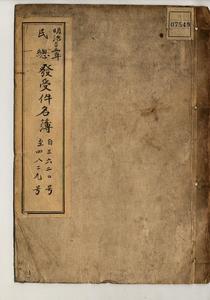 明治三年
民總發受件名簿
自三六二〇号
至四八二九号
07549